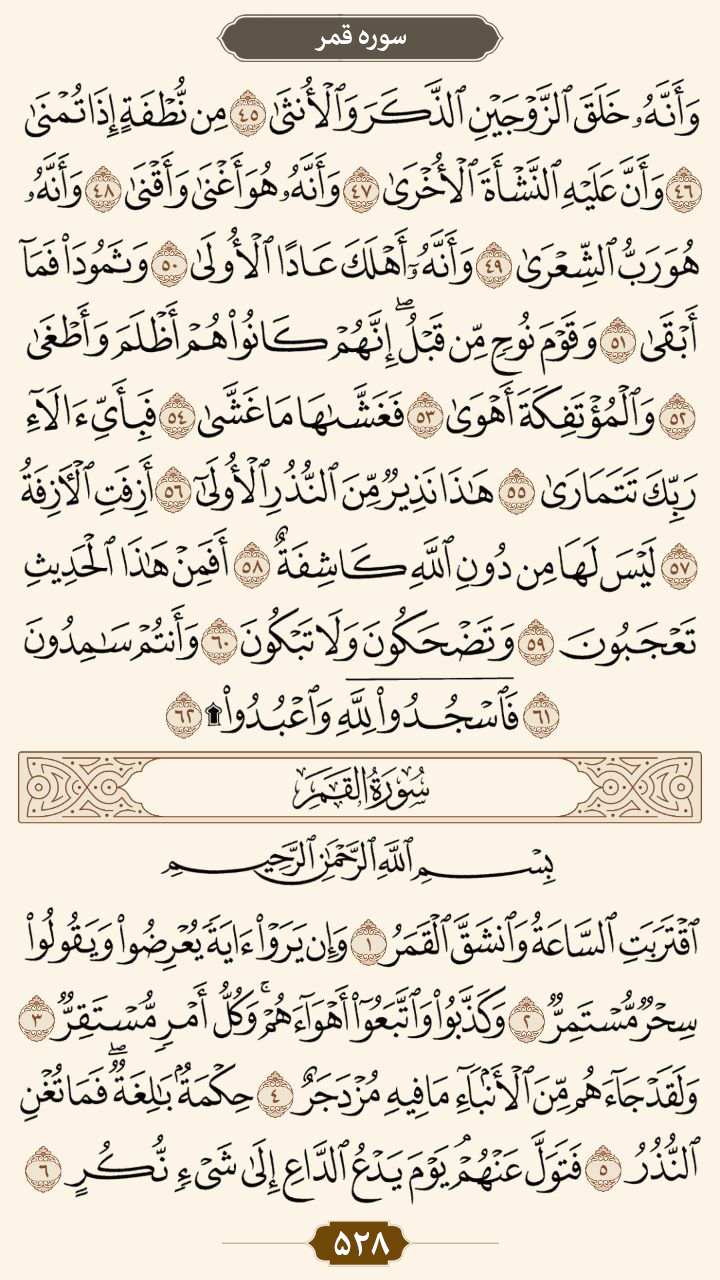 سوره قمر
وَأَنَّهُۥ خَلَقَ ٱلزَّوۡجَيۡنِ ٱلذَّكَرَ وَٱلۡأُنثَىٰ ٤٥ مِن نُّطۡفَةٍ إِذَا تُمۡنَىٰ
٤٦ وَأَنَّ عَلَيۡهِ ٱلنَّشۡأَةَ ٱلۡأُخۡرَىٰ ٤٧ وَأَنَّهُۥ هُوَ أَغۡنَىٰ وَأَقۡنَىٰ ٤٨ وَأَنَّهُۥ
هُوَ رَبُّ ٱلشِّعۡرَىٰ ٤٩ وَأَنَّهُۥٓ أَهۡلَكَ عَادًا ٱلۡأُولَىٰ ٥٠ وَثَمُودَاْ فَمَآ
أَبۡقَىٰ ٥١ وَقَوۡمَ نُوحٖ مِّن قَبۡلُۖ إِنَّهُمۡ كَانُواْ هُمۡ أَظۡلَمَ وَأَطۡغَىٰ
٥٢ وَٱلۡمُؤۡتَفِكَةَ أَهۡوَىٰ ٥٣ فَغَشَّىٰهَا مَا غَشَّىٰ ٥٤ فَبِأَيِّ ءَالَآءِ
رَبِّكَ تَتَمَارَىٰ ٥٥ هَٰذَا نَذِيرٞ مِّنَ ٱلنُّذُرِ ٱلۡأُولَىٰٓ ٥٦ أَزِفَتِ ٱلۡأٓزِفَةُ
٥٧ لَيۡسَ لَهَا مِن دُونِ ٱللَّهِ كَاشِفَةٌ ٥٨ أَفَمِنۡ هَٰذَا ٱلۡحَدِيثِ
تَعۡجَبُونَ ٥٩ وَتَضۡحَكُونَ وَلَا تَبۡكُونَ ٦٠ وَأَنتُمۡ سَٰمِدُونَ
٦١ فَٱسۡجُدُواْۤ لِلَّهِۤ وَٱعۡبُدُواْ۩ ٦٢
سُورَةُ القَمَرِ
بِسۡمِ ٱللَّهِ ٱلرَّحۡمَٰنِ ٱلرَّحِيمِ
ٱقۡتَرَبَتِ ٱلسَّاعَةُ وَٱنشَقَّ ٱلۡقَمَرُ ١ وَإِن يَرَوۡاْ ءَايَةٗ يُعۡرِضُواْ وَيَقُولُواْ
سِحۡرٞ مُّسۡتَمِرّٞ ٢ وَكَذَّبُواْ وَٱتَّبَعُوٓاْ أَهۡوَآءَهُمۡۚ وَكُلُّ أَمۡرٖ مُّسۡتَقِرّٞ ٣
وَلَقَدۡ جَآءَهُم مِّنَ ٱلۡأَنۢبَآءِ مَا فِيهِ مُزۡدَجَرٌ ٤ حِكۡمَةُۢ بَٰلِغَةٞۖ فَمَا تُغۡنِ
ٱلنُّذُرُ ٥ فَتَوَلَّ عَنۡهُمۡۘ يَوۡمَ يَدۡعُ ٱلدَّاعِ إِلَىٰ شَيۡءٖ نُّكُرٍ ٦
۵۲۸